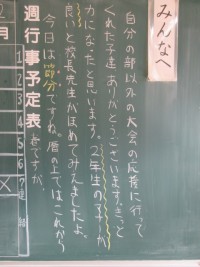 みんなへ
自分の部以外の大会の応援に行って
くれた子達ありがとうございます。きっと
力になったと思います。2年生の子が
良いと校長先生がほめてみえましたよ。
今日は節分ですね。暦の上ではこれから
春ですが、
月
週行事予定表
1
2
3
4
5
6